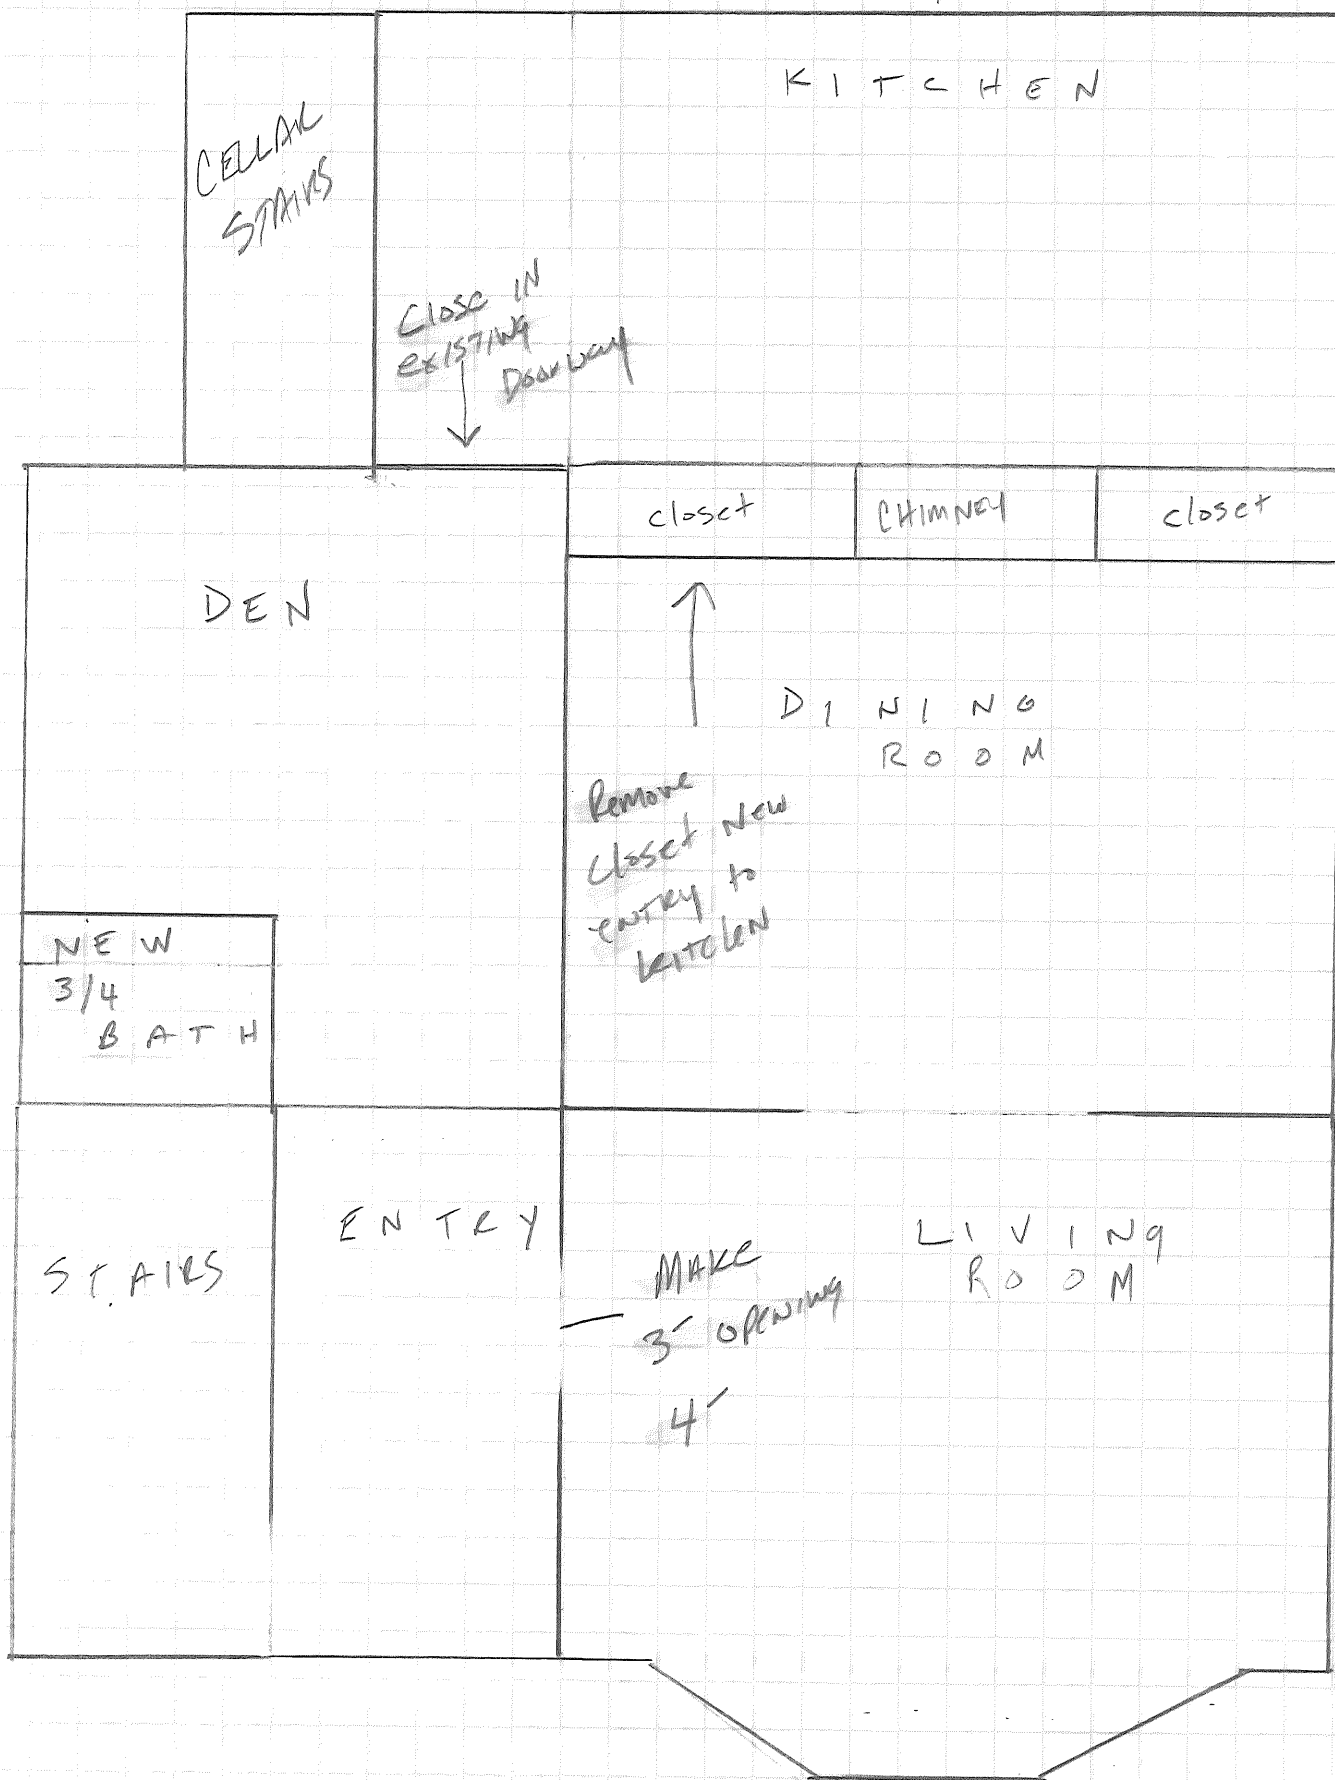 KITCHEN
CELLAR
STAIRS
Close IN
existing
Doorway
closet
CHIMNEY
closet
DEN
DINING
ROOM
Remove
closet New
entry to
kitchen
NEW
3/4
BATH
ENTRY
STAIRS
LIVING
ROOM
MAKE
3' opening
4'